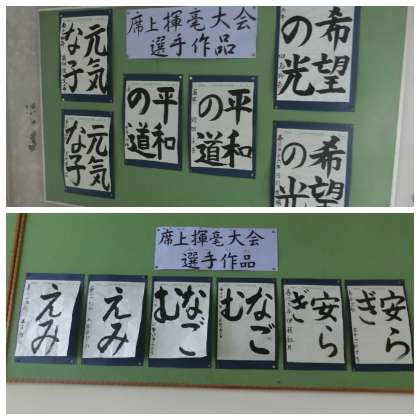 席上揮毫大会
選手作品
元気
な子
元気
な子
平和
の道
平和
の道
希望
の光
希望
の光
席上揮毫大会
選手作品
えみ
えみ
なご
む
なご
む
安ら
ぎ
安ら
ぎ